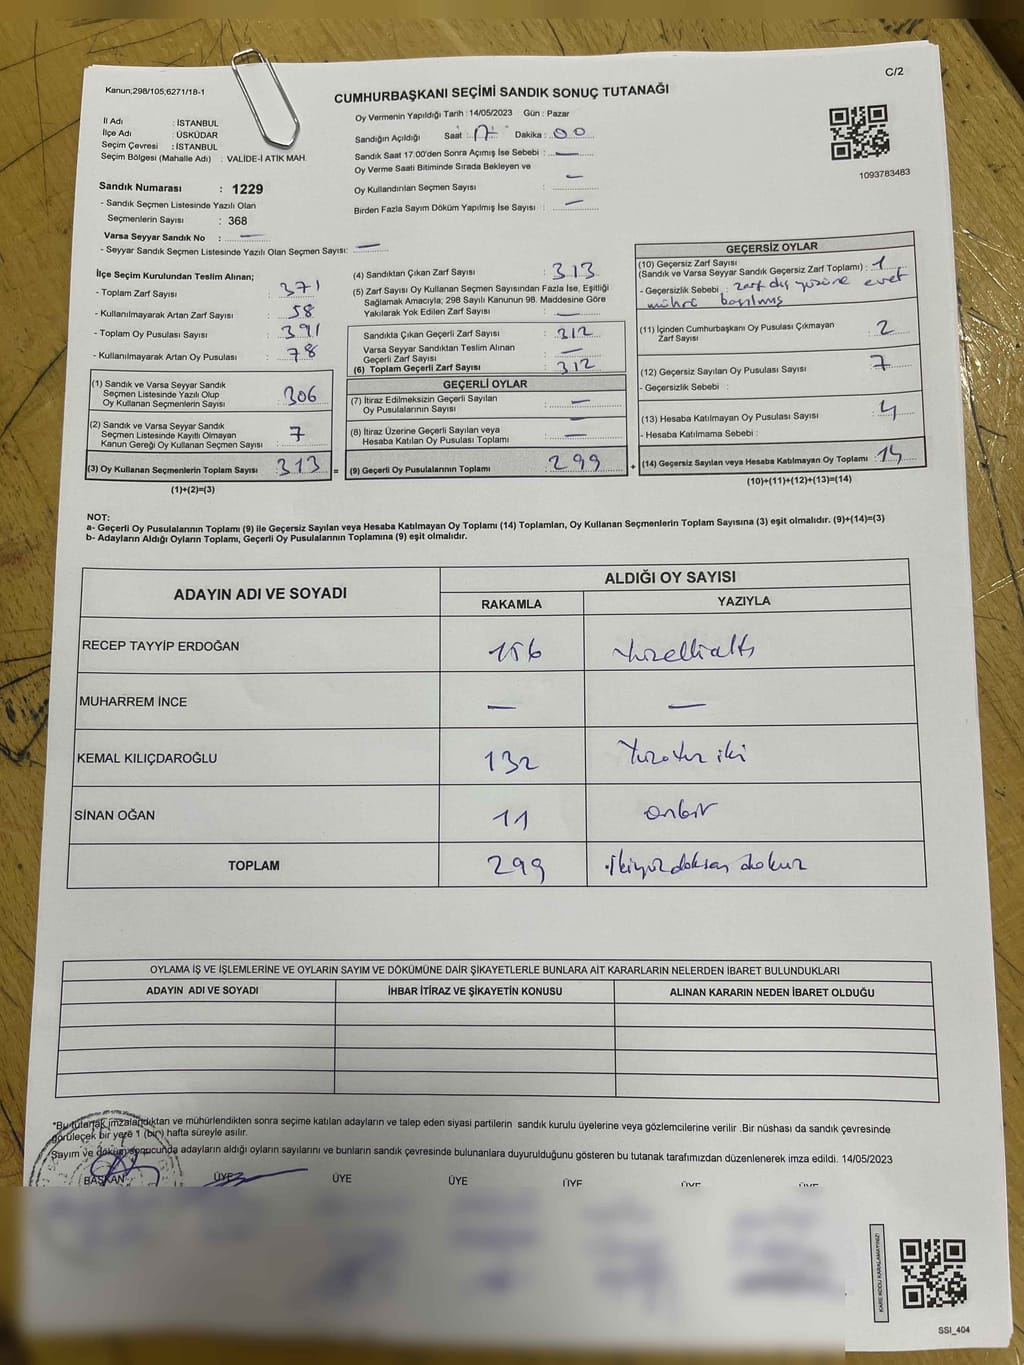 C/2
Kanun;298/105;6271/18-1
CUMHURBAŞKANI SEÇİMİ SANDIK SONUÇ TUTANAĞI
Oy Vermenin Yapıldığı Tarih : 14/05/2023 Gün : Pazar
İl Adı : İSTANBUL
İlçe Adı : ÜSKÜDAR
Seçim Çevresi : İSTANBUL
Seçim Bölgesi (Mahalle Adı) : VALİDE-İ ATİK MAH.
Sandığın Açıldığı Saat : 17 Dakika : 00
Sandık Saat 17:00'den Sonra Açımış İse Sebebi : —
Oy Verme Saati Bitiminde Sırada Bekleyen ve
Oy Kullandırılan Seçmen Sayısı : —
Birden Fazla Sayım Döküm Yapılmış İse Sayısı : —
1093783483
Sandık Numarası : 1229
- Sandık Seçmen Listesinde Yazılı Olan
Seçmenlerin Sayısı : 368
Varsa Seyyar Sandık No : —
- Seyyar Sandık Seçmen Listesinde Yazılı Olan Seçmen Sayısı: —
İlçe Seçim Kurulundan Teslim Alınan;
- Toplam Zarf Sayısı : 371
- Kullanılmayarak Artan Zarf Sayısı : 58
- Toplam Oy Pusulası Sayısı : 391
- Kullanılmayarak Artan Oy Pusulası : 78
(1) Sandık ve Varsa Seyyar Sandık
Seçmen Listesinde Yazılı Olup
Oy Kullanan Seçmenlerin Sayısı : 306
(2) Sandık ve Varsa Seyyar Sandık
Seçmen Listesinde Kayıtlı Olmayan
Kanun Gereği Oy Kullanan Seçmen Sayısı : 7
(3) Oy Kullanan Seçmenlerin Toplam Sayısı : 313 =
(1)+(2)=(3)
(4) Sandıktan Çıkan Zarf Sayısı : 313
(5) Zarf Sayısı Oy Kullanan Seçmen Sayısından Fazla İse, Eşitliği
Sağlamak Amacıyla; 298 Sayılı Kanunun 98. Maddesine Göre
Yakılarak Yok Edilen Zarf Sayısı : —
Sandıkta Çıkan Geçerli Zarf Sayısı : 312
Varsa Seyyar Sandıktan Teslim Alınan
Geçerli Zarf Sayısı : —
(6) Toplam Geçerli Zarf Sayısı : 312
GEÇERLİ OYLAR
(7) İtiraz Edilmeksizin Geçerli Sayılan
Oy Pusulalarının Sayısı : —
(8) İtiraz Üzerine Geçerli Sayılan veya
Hesaba Katılan Oy Pusulası Toplamı : —
(9) Geçerli Oy Pusulalarının Toplamı : 299 +
GEÇERSİZ OYLAR
(10) Geçersiz Zarf Sayısı
(Sandık ve Varsa Seyyar Sandık Geçersiz Zarf Toplamı) : 1
- Geçersizlik Sebebi : zarf dış yüzüne evet
mührü basılmış
(11) İçinden Cumhurbaşkanı Oy Pusulası Çıkmayan
Zarf Sayısı : 2
(12) Geçersiz Sayılan Oy Pusulası Sayısı : 7
- Geçersizlik Sebebi :
(13) Hesaba Katılmayan Oy Pusulası Sayısı : 4
- Hesaba Katılmama Sebebi :
(14) Geçersiz Sayılan veya Hesaba Katılmayan Oy Toplamı : 14
(10)+(11)+(12)+(13)=(14)
NOT:
a- Geçerli Oy Pusulalarının Toplamı (9) ile Geçersiz Sayılan veya Hesaba Katılmayan Oy Toplamı (14) Toplamları, Oy Kullanan Seçmenlerin Toplam Sayısına (3) eşit olmalıdır. (9)+(14)=(3)
b- Adayların Aldığı Oyların Toplamı, Geçerli Oy Pusulalarının Toplamına (9) eşit olmalıdır.
ADAYIN ADI VE SOYADI ALDIĞI OY SAYISI
RAKAMLA YAZIYLA
RECEP TAYYİP ERDOĞAN 156 Yüzellialtı
MUHARREM İNCE — —
KEMAL KILIÇDAROĞLU 132 Yüzotuz iki
SİNAN OĞAN 11 onbir
TOPLAM 299 ikiyüzdoksan dokuz
OYLAMA İŞ VE İŞLEMLERİNE VE OYLARIN SAYIM VE DÖKÜMÜNE DAİR ŞİKAYETLERLE BUNLARA AİT KARARLARIN NELERDEN İBARET BULUNDUKLARI
ADAYIN ADI VE SOYADI İHBAR İTİRAZ VE ŞİKAYETİN KONUSU ALINAN KARARIN NEDEN İBARET OLDUĞU
*Bu tutanak imzalandıktan ve mühürlendikten sonra seçime katılan adayların ve talep eden siyasi partilerin sandık kurulu üyelerine veya gözlemcilerine verilir .Bir nüshası da sandık çevresinde
görülecek bir yere 1 (bir) hafta süreyle asılır.
Sayım ve döküm sonucunda adayların aldığı oyların sayılarını ve bunların sandık çevresinde bulunanlara duyurulduğunu gösteren bu tutanak tarafımızdan düzenlenerek imza edildi. 14/05/2023
BAŞKAN ÜYE ÜYE ÜYE ÜYE ÜYE ÜYE
KARE KODU KARALAMAYINIZ!
SSI_404